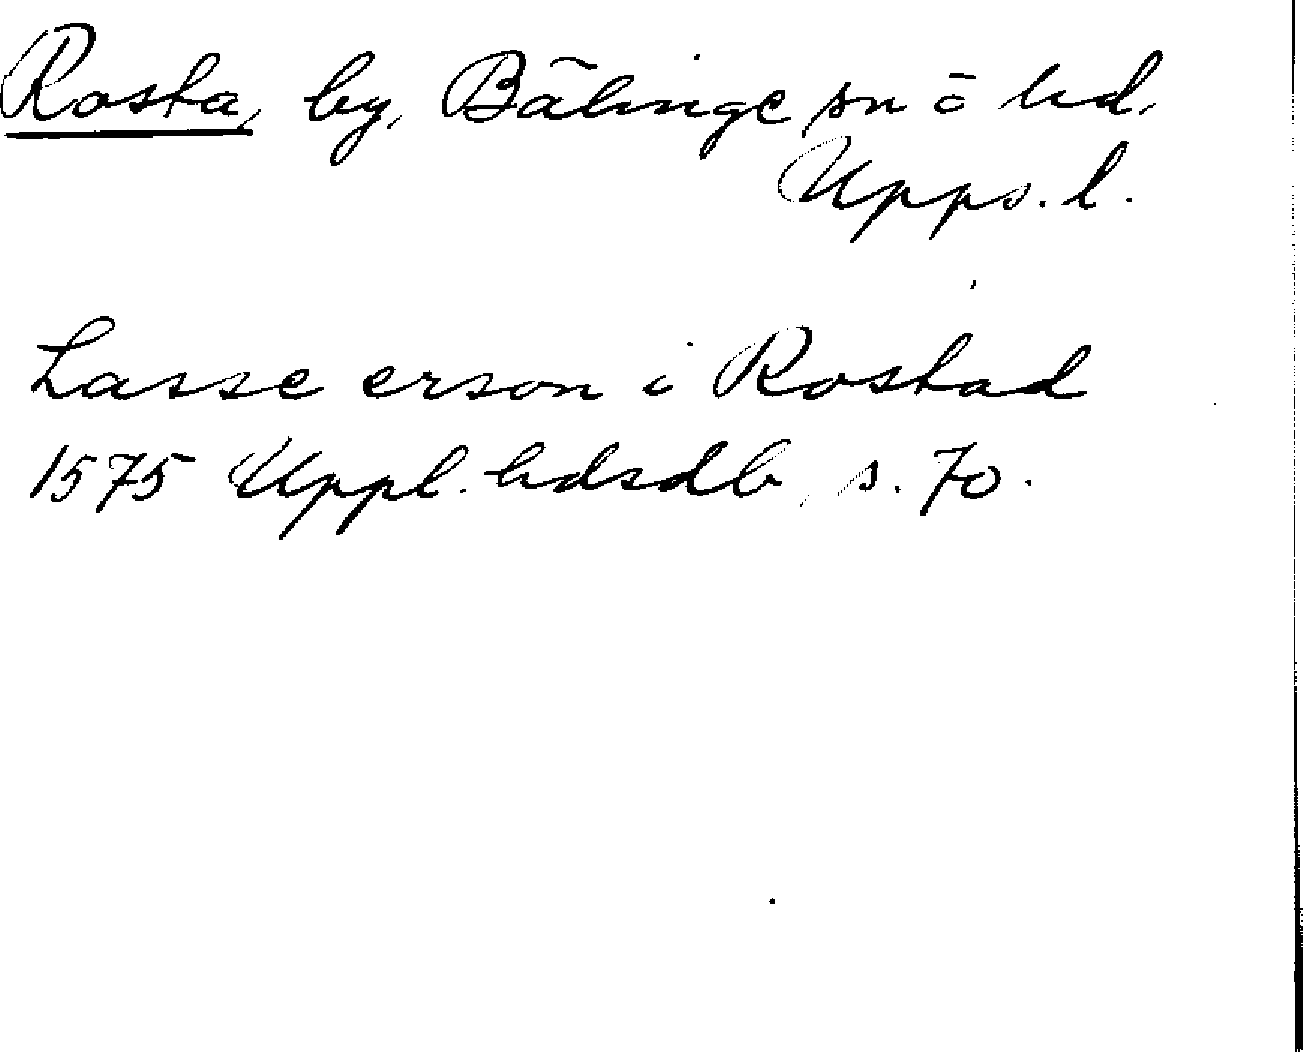 Rosta, by, Bälinge sn o hd,
Upps. l.
Lasse erson i Rostad
1575 Uppl. hdsdb, s. 70.